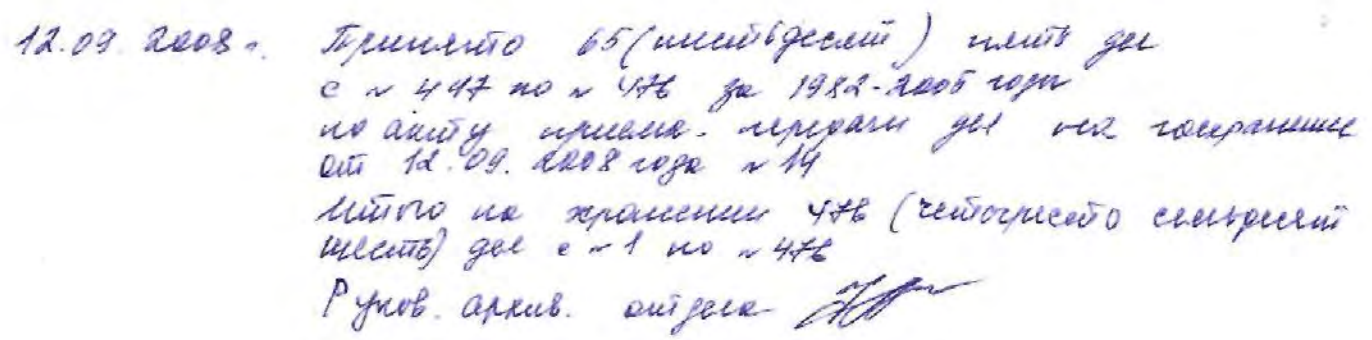 12.09.2008 г. Принято 65 (шестьдесят) пять дел
с № 417 по № 476 за 1982-2005 годы
по акту приема-передачи дел на госхранение
от 12.09.2008 года № 14
Итого на хранении 476 (четыреста семьдесят
шесть) дел с №1 по № 476
Руков. архив. отдела